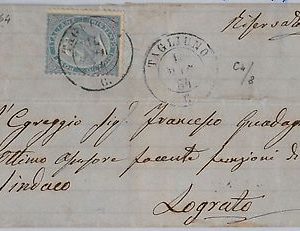 64
Riservata
TAGLIUNO
C4/8
All'Egreggio Sig. Francesco Guadag
Ottimo Assessore facente funzioni di
Sindaco
Lograto